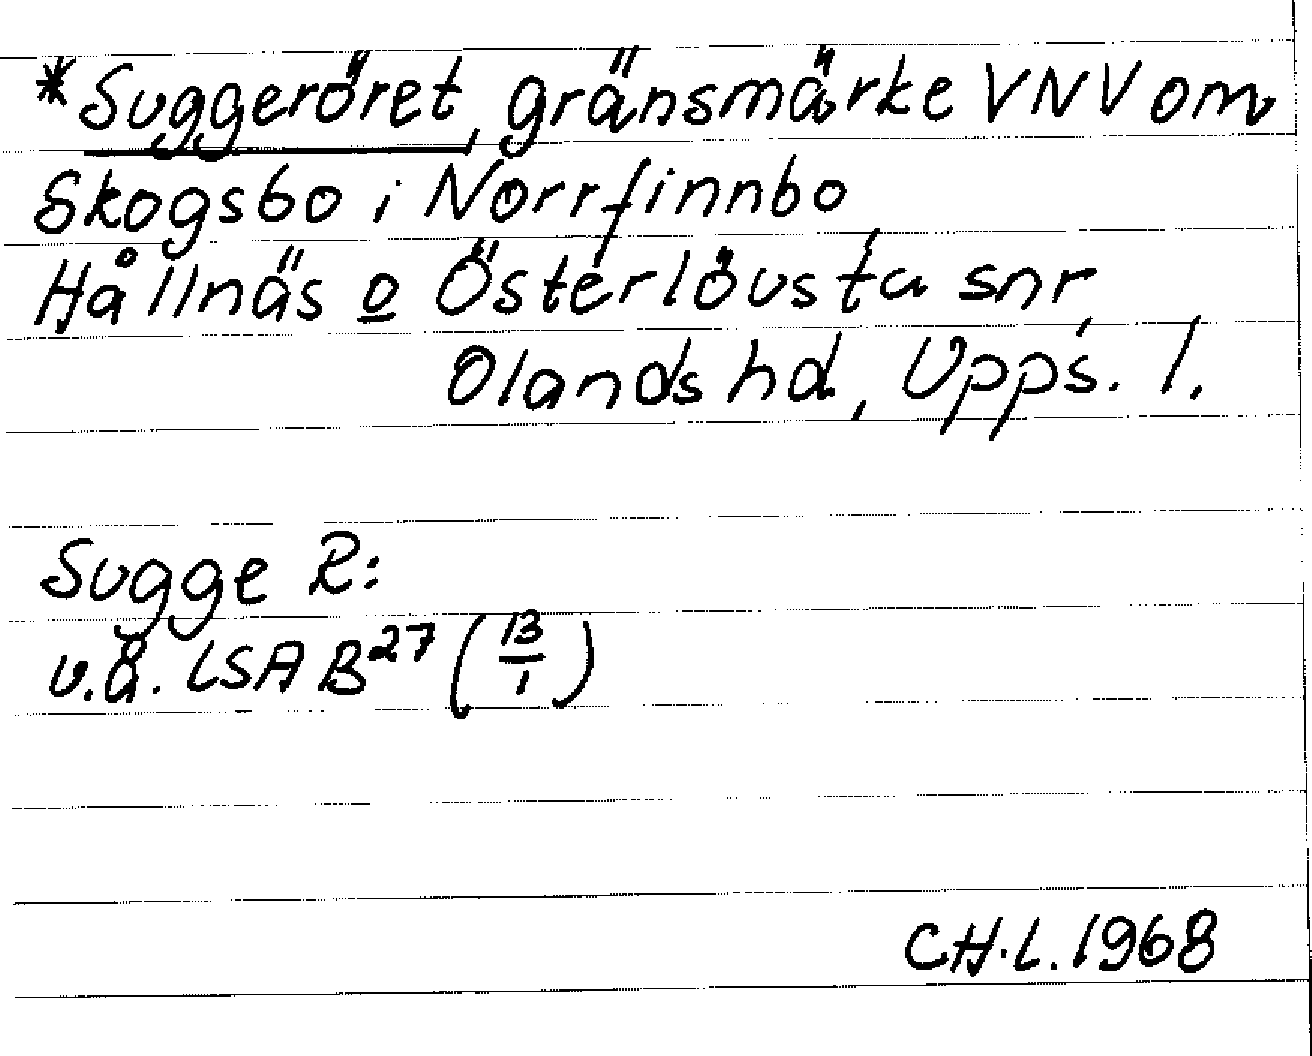 *Suggeröret, gränsmärke VNV om
Skogsbo i Norrfinnbo
Hållnäs o Österlövsta snr,
Olands hd, Upps. l.
Sugge R:
v.å. LSA B27 (13/1)
CH.L. 1968